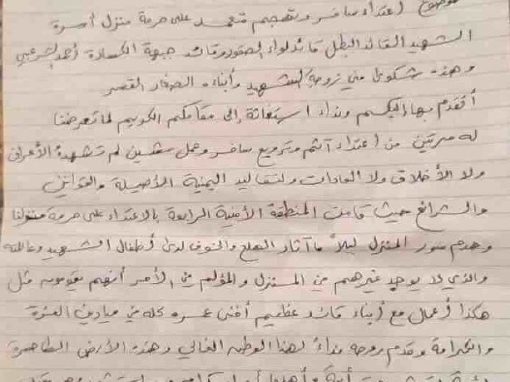 موضوع / اعتداء سافر وتهجم متعمد على حرمة منزل أسرة
الشهيد القائد البطل قائد لواء الصقور وقائد جبهة الكسارة أحمد الشرعبي
وهذه شكوى من زوجة الشهيد وأبناءه الصغار القصر
أتقدم بها إليكم ونداء استغاثة إلى مقامكم الكريم لما تعرضنا
له مرتين من اعتداء آثم وترويع سافر وعمل مشين لم تشهده الأعراف
ولا الأخلاق ولا العادات والتقاليد اليمنية الأصيلة والقوانين
والشرائع حيث قامت المنطقة الأمنية الرابعة بالاعتداء على حرمة منزلنا
وهدم سور المنزل ليلاً ما أثار الهلع والخوف لدى أطفال الشهيد وعائلته
والذي لا يوجد غيرهم في المنزل والمؤلم في الأمر أنهم يقومون مثل
هكذا أعمال مع أبناء قائد عظيم أفنى عمره كله في ميادين العزة
والكرامة وقدم روحه فداءً لهذا الوطن الغالي وهذه الأرض الطاهرة